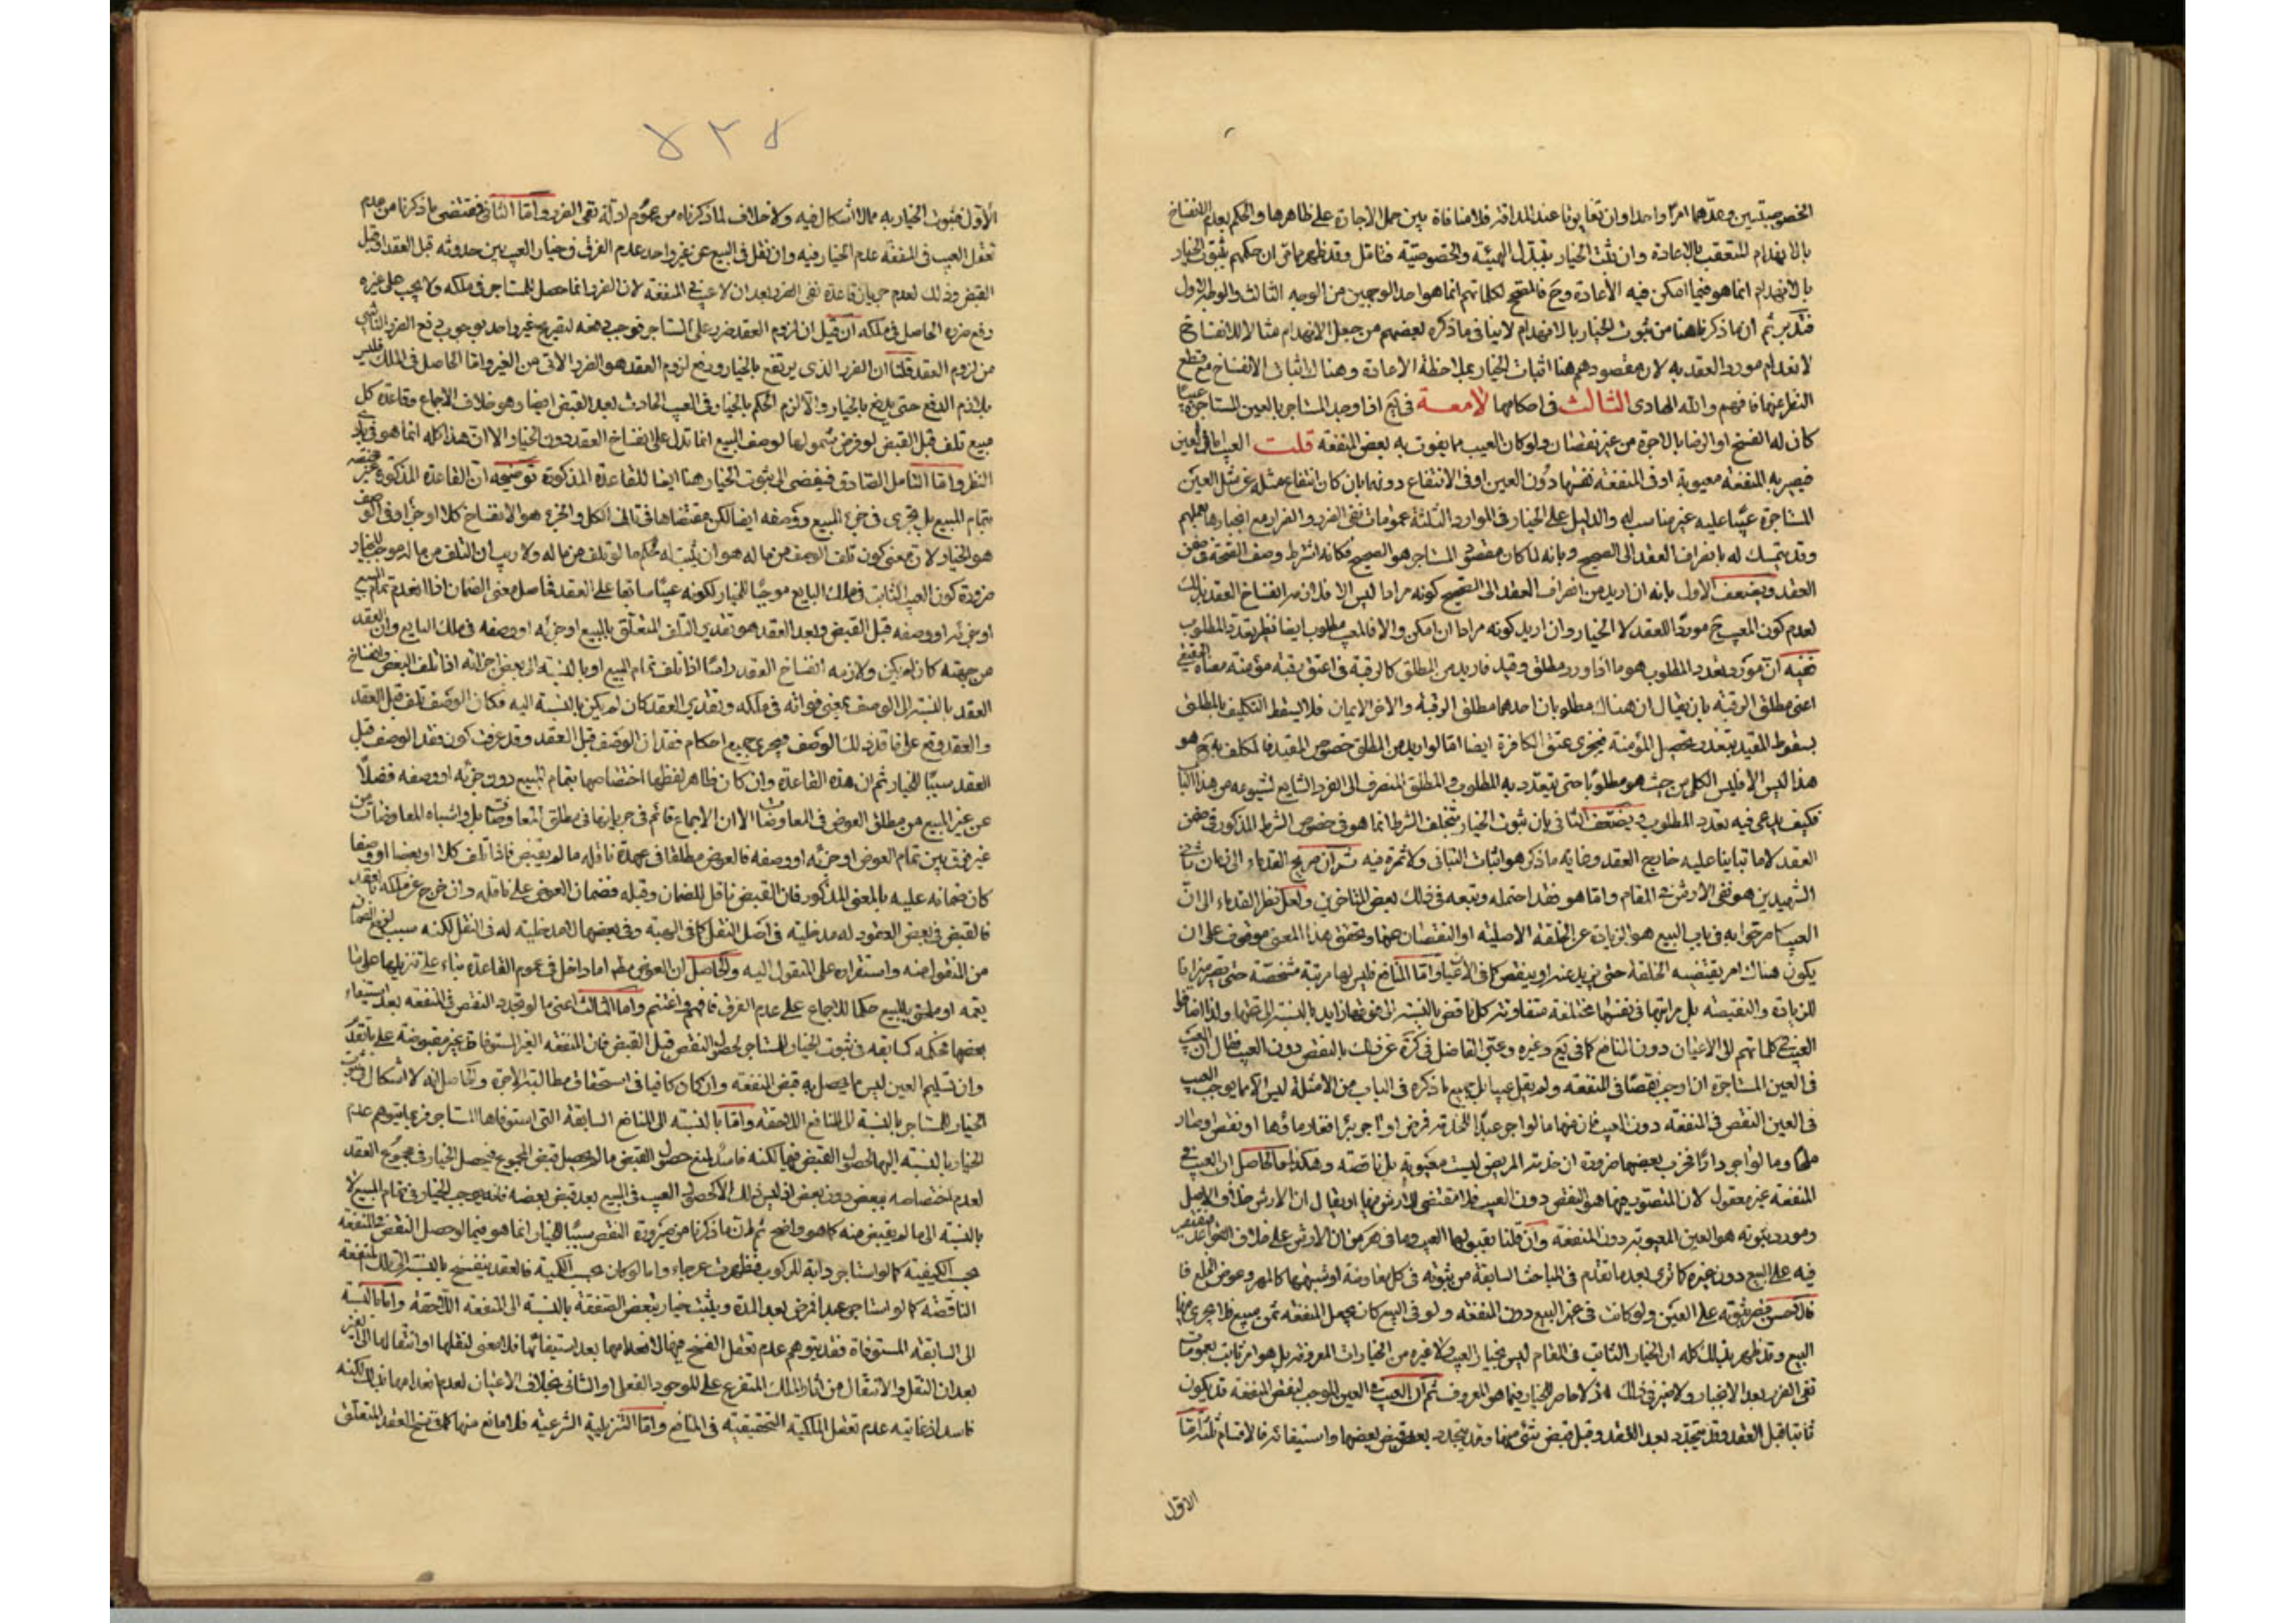 الخصوصيتين وعدهما امرا واحدا وان تغايرتا عند المداقة فلا منافاة بين حمل الاجارة على ظاهرها والحكم بعدم الانفساخ
بالانهدام المتعقب بالاعادة وان ثبت الخيار بتبدل الهيئة والخصوصية فتامل وقد ظهر مما مر ان حكمهم بثبوت الخيار
بالانهدام انما هو فيما امكن فيه الاعادة وح فالمصحح لكلماتهم انما هو احد الوجهين من الوجه الثالث والوجه الاول
فتدبر ثم ان ما ذكرناه هنا من ثبوت الخيار بالانهدام لا ينافي ما ذكره بعضهم من جعل الانهدام مثالا للانفساخ
لانعدام مورد العقد به لان مقصودهم هنا اثبات الخيار بملاحظة الاعادة وهناك اثبات الانفساخ مع قطع
النظر عنها فافهم والله الهادي الثالث في احكامها لامعة في اذا وجد المستاجر بالعين المستاجرة عيبا
كان له الفسخ او الرضا بالاجرة من غير نقصان ولو كان العيب مما يفوت به بعض المنفعة قلت العيب اما في العين
فيصير به المنفعة معيوبة او في المنفعة نفسها دون العين او في الانتفاع دونهما بان كان انتفاع مثله عن مثل العين
المستاجرة عيبا عليه غير مناسب له والدليل على الخيار في الموارد الثلثة عمومات نفي الضرر والضرار مع انجبارها بعملهم
وقد يتمسك له بانصراف العقد الى الصحيح وبانه لما كان مقصود المستاجر هو الصحيح فكانه اشترط وصف الصحة في ضمن
العقد ويضعف الاول بانه ان اريد من انصراف العقد الى الصحيح كونه مرادا ليس الا فلازمه انفساخ العقد بذلك
لعدم كون المعيب ح موردا للعقد لا الخيار وان اريد كونه مرادا ان امكن والا فالمعيب مطلوب ايضا نظير تعدد المطلوب
ففيه ان مورد تعدد المطلوب هو ما اذا ورد مطلق وقيد فاريد من المطلق كالرقبة في اعتق رقبة مؤمنة معناه الحقيقي
اعني مطلق الرقبة بان يقال ان هناك مطلوبان احدهما مطلق الرقبة والاخر الايمان فلا يسقط التكليف بالمطلق
بسقوط المقيد بتعذر تحصيل المؤمنة فيجزي عتق الكافرة ايضا اما لو اريد من المطلق خصوص المقيد فالمكلف به ح هو
هذا ليس الا فليس الكلي من حيث هو مطلوبا حتى يتعدد به المطلوب والمطلق المنصرف الى الفرد الشايع لشيوعه من هذا الباب
فكيف يدعى فيه تعدد المطلوب ويضعف الثاني بان ثبوت الخيار بتخلف الشرط انما هو في خصوص الشرط المذكور في ضمن
العقد لا ما تبانيا عليه خارج العقد وغاية ما ذكر هو اثبات التباني ولا ثمرة فيه ثم ان صريح القدماء الى زمان ثاني
الشهيدين هو نفي الارش في المقام واما هو فقد احتمله وتبعه في ذلك بعض المتاخرين ولعل نظر القدماء الى ان
العيب كما صرحوا به في باب البيع هو الزيادة عن الخلقة الاصلية او النقصان عنها وتحقق هذا المعنى موقوف على ان
يكون هناك امر يقتضيه الخلقة حتى يزيد عنه او ينقص كما في الاعيان واما المنافع فليس لها مرتبة مشخصة حتى تصير ميزانا
للزيادة والنقيصة بل مراتبها في نفسها مختلفة متفاوتة كل ناقص بالنسبة الى ما فوقها زايد بالنسبة الى تحتها ولذا اضافوا
العيب في كلماتهم الى الاعيان دون المنافع كما في يع وغيره وعبر الفاضل في كرة عن ذلك بالنقص دون العيب فقال ان العيب
في العين المستاجرة ان اوجب نقصا في المنفعة ولم يقل عيبا بل جميع ما ذكره في الباب من الامثلة ليس الا مما يوجب العيب
في العين النقص في المنفعة دون العيب فان منها ما لو اجر عبدا للخدمة فمرض او آجر بئرا فغار ماؤها او نقص او صار
ملحا وما لو اجر دارا فخرب بعضها ضرورة ان خدمة المريض ليست معيوبة بل ناقصة وهكذا والحاصل ان العيب في
المنفعة غير معقول لان المتصور فيها هو النقص دون العيب فلا مقتضي للارش فيها او يقال ان الارش خلاف الاصل
ومورد ثبوته هو العين المعيوبة دون المنفعة وان قلنا بقبولها العيب وما في هر من ان الارش على خلاف القواعد فيقتصر
فيه على البيع دون غيره كما ترى بعد ما تقدم في المباحث السابقة من ثبوته في كل معاوضة او شبهها كالمهر وعوض الخلع فا
فالاحسن قصر ثبوته على العين ولو كانت في غير البيع دون المنفعة ولو في البيع كان يجعل المنفعة ثمن مبيع فلا يجري فيها
البيع وقد ظهر بذلك كله ان الخيار الثابت في المقام ليس بخيار العيب ولا غيره من الخيارات المعروفة بل هو امر ثابت بعمومات
نفي الضرر بعد الانجبار ولا ضير في ذلك اذ لا حاصر للخيار فيما هو المعروف ثم ان العيب في العين الموجب لنقص المنفعة قد يكون
ثابتا قبل العقد وقد يتجدد بعد العقد وقبل قبض شئ منها وقد يتجدد بعد قبض بعضها واستيفائه فالاقسام ثلثة اما
الاول
٥٢٥
الاول فثبوت الخيار به مما لا اشكال فيه ولا خلاف لما ذكرناه من عموم ادلة نفي الضرر واما الثاني فمقتضى ما ذكرنا من عدم
تعقل العيب في المنفعة عدم الخيار فيه وان نقل في البيع عن غير واحد عدم الفرق في خيار العيب بين حدوثه قبل العقد او قبل
القبض وذلك لعدم جريان قاعدة نفي الضرر بعد ان لا عيب في المنفعة لان الضرر انما حصل للمستاجر في ملكه ولا يجب على غيره
رفع ضرره الحاصل في ملكه ان قيل ان لزوم العقد ضرر على المستاجر فوجب دفعه لتصريح غير واحد بوجوب دفع الضرر الناشي
من لزوم العقد قلنا ان الضرر الذي يرتفع بالخيار ورفع لزوم العقد هو الضرر الاتي من الغير واما الحاصل في الملك فليس
بلازم الدفع حتى يدفع بالخيار والا لزم الحكم بالخيار في العيب الحادث بعد القبض ايضا وهو خلاف الاجماع وقاعدة كل
مبيع تلف قبل القبض لو فرض شمولها لوصف المبيع انما تدل على انفساخ العقد دون الخيار الا ان هذا كله انما هو في بادي
النظر واما التامل الصادق فيفضي الى ثبوت الخيار هنا ايضا للقاعدة المذكورة توضيحه ان القاعدة المذكورة غير مختصة
بتمام المبيع بل تجري في جزء المبيع ووصفه ايضا لكن مقتضاها في تالف الكل والجزء هو الانفساخ كلا او جزءا وفي الوصف
هو الخيار لان معنى كون تلف الوصف من ماله هو ان يثبت له حكم ما لو تلف من ماله ولا ريب ان التلف من ماله موجب للخيار
ضرورة كون العيب الثابت في ملك البايع موجبا للخيار لكونه عيبا سابقا على العقد فحاصل معنى الضمان اذا انعدم تمام المبيع
او جزئه او وصفه قبل القبض وبعد العقد هو تقدير التلف المتعلق بالمبيع او جزئه او وصفه في ملك البايع وان العقد
من جهته كان لم يكن ولازمه انفساخ العقد راسا اذا تلف تمام المبيع او بالنسبة الى بعض اجزائه اذا تلف البعض وانفساخ
العقد بالنسبة الى الوصف بمعنى فواته في ملكه وتقدير العقد كان لم يكن بالنسبة اليه فكان الوصف تلف قبل العقد
والعقد وقع على فاقد ذلك الوصف فيجري جميع احكام فقدان الوصف قبل العقد وقد عرفت كون فقد الوصف قبل
العقد سببا للخيار ثم ان هذه القاعدة وان كان ظاهر لفظها اختصاصها بتمام المبيع دون جزئه او وصفه فضلا
عن غير المبيع من مطلق العوض في المعاوضات الا ان الاجماع قائم في جريانها في مطلق المعاوضات بل واشباه المعاوضات من
غير فرق بين تمام العوض او جزئه او وصفه فالعوض مطلقا في عهدة ناقله ما لم يقبض فاذا تلف كلا او بعضا او وصفا
كان ضمانه عليه بالمعنى المذكور فان القبض ناقل للضمان وقبله فضمان العوض على ناقله وان خرج عن ملكه بالعقد
فالقبض في بعض العقود له مدخلية في اصل النقل كما في الهبة وفي بعضها لا مدخلية له في النقل لكنه سبب لرفع الضمان
من المنقول منه واستقراره على المنقول اليه والحاصل ان العوض مط اما داخل في عموم القاعدة بناء على تنزيلها على ما
يعمه او ملحق بالمبيع حكما للاجماع على عدم الفرق فافهم واغتنم واما الثالث اعني ما لو تجدد النقص في المنفعة بعد استيفاء
بعضها فحكمه كسابقه في ثبوت الخيار للمستاجر لحصول النقص قبل القبض فان المنفعة الغير المستوفاة غير مقبوضة على ما تقدم
وان تسليم العين ليس مما يحصل به قبض المنفعة وان كان كافيا في استحقاق مطالبة الاجرة والحاصل انه لا اشكال في ثبوت
الخيار للمستاجر بالنسبة الى المنافع اللاحقة واما بالنسبة الى المنافع السابقة التي استوفاها المستاجر فربما يتوهم عدم
الخيار بالنسبة اليها لحصول القبض فيها لكنه فاسد لمنع حصول القبض ما لم يحصل قبض المجموع فيحصل الخيار في مجموع العقد
لعدم اختصاصه ببعض دون بعض اذ ليس ذلك الا كحصول العيب في المبيع بعد قبض بعضه فانه يوجب الخيار في تمام المبيع لا
بالنسبة الى ما لم يقبض منه كما هو واضح ثم ان ما ذكرنا من ضرورة النقص سببا للخيار انما هو فيما لو حصل النقص في المنفعة
بحسب الكيفية كما لو استاجر دابة للركوب فظهرت عرجاء واما لو كان بحسب الكمية فالعقد ينفسخ بالنسبة الى تلك المنفعة
الناقصة كما لو استاجر عبدا فمرض بعد المدة ويثبت خيار تبعض الصفقة بالنسبة الى المنفعة اللاحقة واما بالنسبة
الى السابقة المستوفاة فقد يتوهم عدم تعقل الفسخ فيها لانعدامها بعد استيفائها فلا معنى لنقلها او انتقالها الى الغير
بعد ان النقل والانتقال من اثار الملك المتفرع على الموجود الفعلي او الشاني بخلاف الاعيان لعدم انعدامها بذلك لكنه
فاسد اذ غايته عدم تعقل الملكية التحقيقية في المنافع واما التنزيلية الشرعية فلا مانع منها كما في فسخ العقد المتعلق